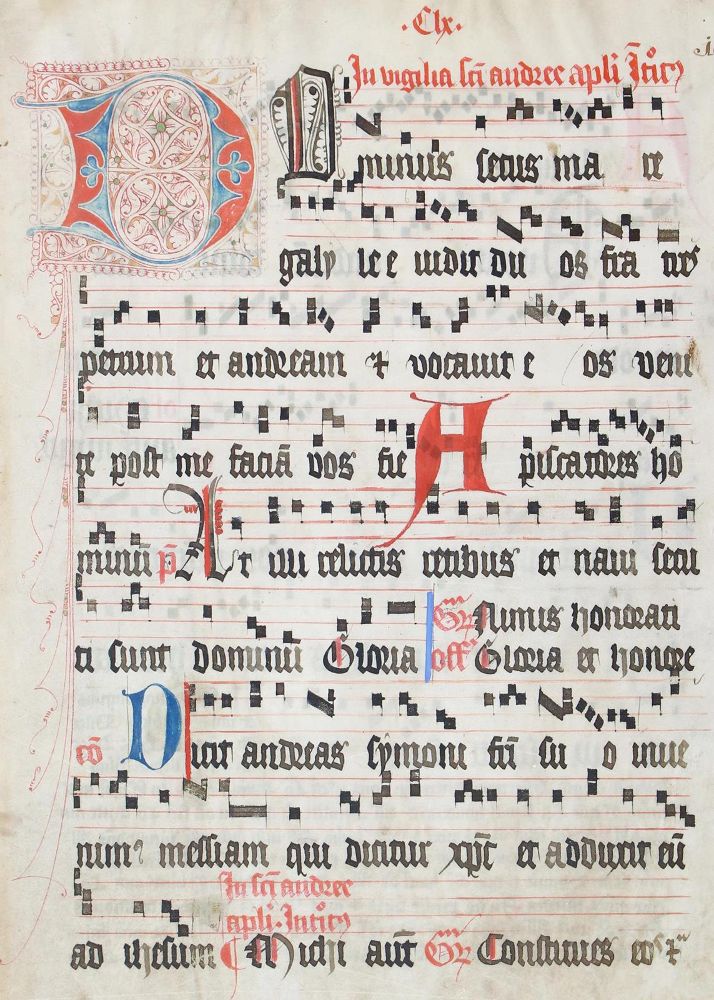 ·Clx·
In vigilia scī andree apłi Introitꝰ
Dominus secus ma re
galy lee uidit du os fra tres
petrum et andream ⁊ vocauit e os veni
te post me faciā vos fie A ri piscatores ho
minū p̄ At illi relictis retibus et naui secu
ti sunt dominū Gloria Gr̄ Nimis honorati
off Gloria et honore
cō Dicit andreas symoni frī su o inue
nimꝰ messiam qui dicitur xp̄c et adduxit eū
In scī andree
apłi · Introitꝰ
ad ihesum Michi aut̄ Gr̄ Constitues eos